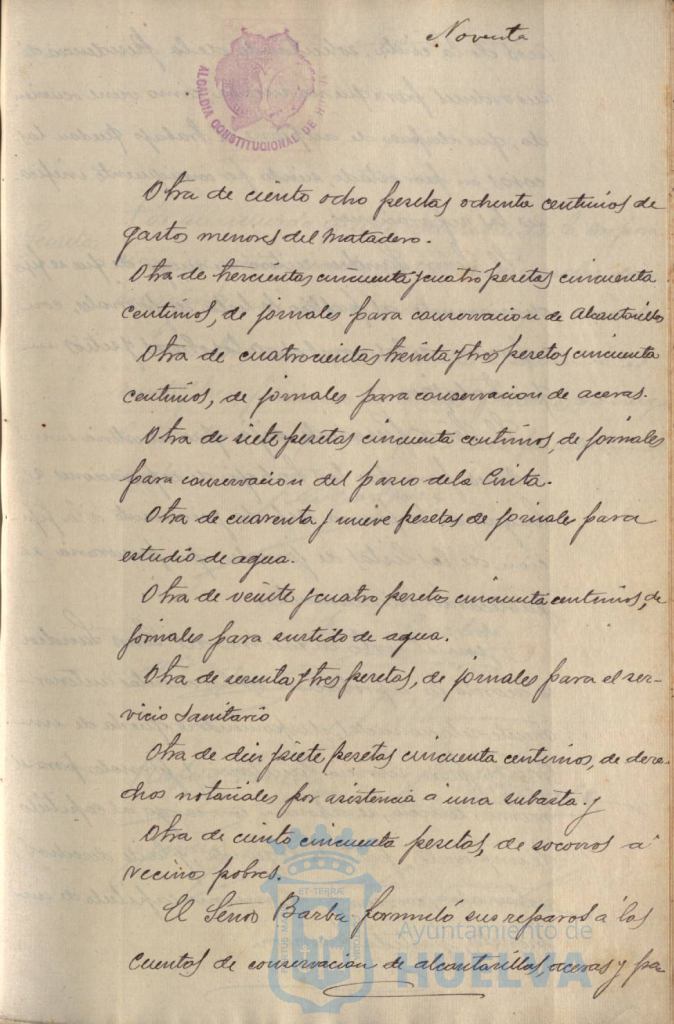 Noventa
ALCALDIA CONSTITUCIONAL DE HUELVA
Otra de ciento ocho pesetas ochenta centimos de
gastos menores del Matadero.
Otra de trescientas cincuenta y cuatro pesetas cincuenta
centimos, de jornales para conservacion de Alcantarillas
Otra de cuatrocientas treinta y tres pesetas cincuenta
centimos, de jornales para conservacion de aceras.
Otra de siete pesetas cincuenta centimos, de jornales
para conservacion del paseo de la Cinta.
Otra de cuarenta y nueve pesetas de jornale para
estudio de agua.
Otra de veinte y cuatro pesetas cincuenta centimos, de
jornales para surtido de agua.
Otra de sesenta y tres pesetas, de jornales para el ser-
vicio Sanitario
Otra de diez y siete pesetas cincuenta centimos, de dere-
chos notariales por asistencia a una subasta. y
Otra de ciento cincuenta pesetas, de socorros a
vecino pobres.
El Señor Barba formuló sus reparos á las
cuentas de conservacion de alcantarillas, aceras y pa-
ET TERRAE
Ayuntamiento de
HUELVA